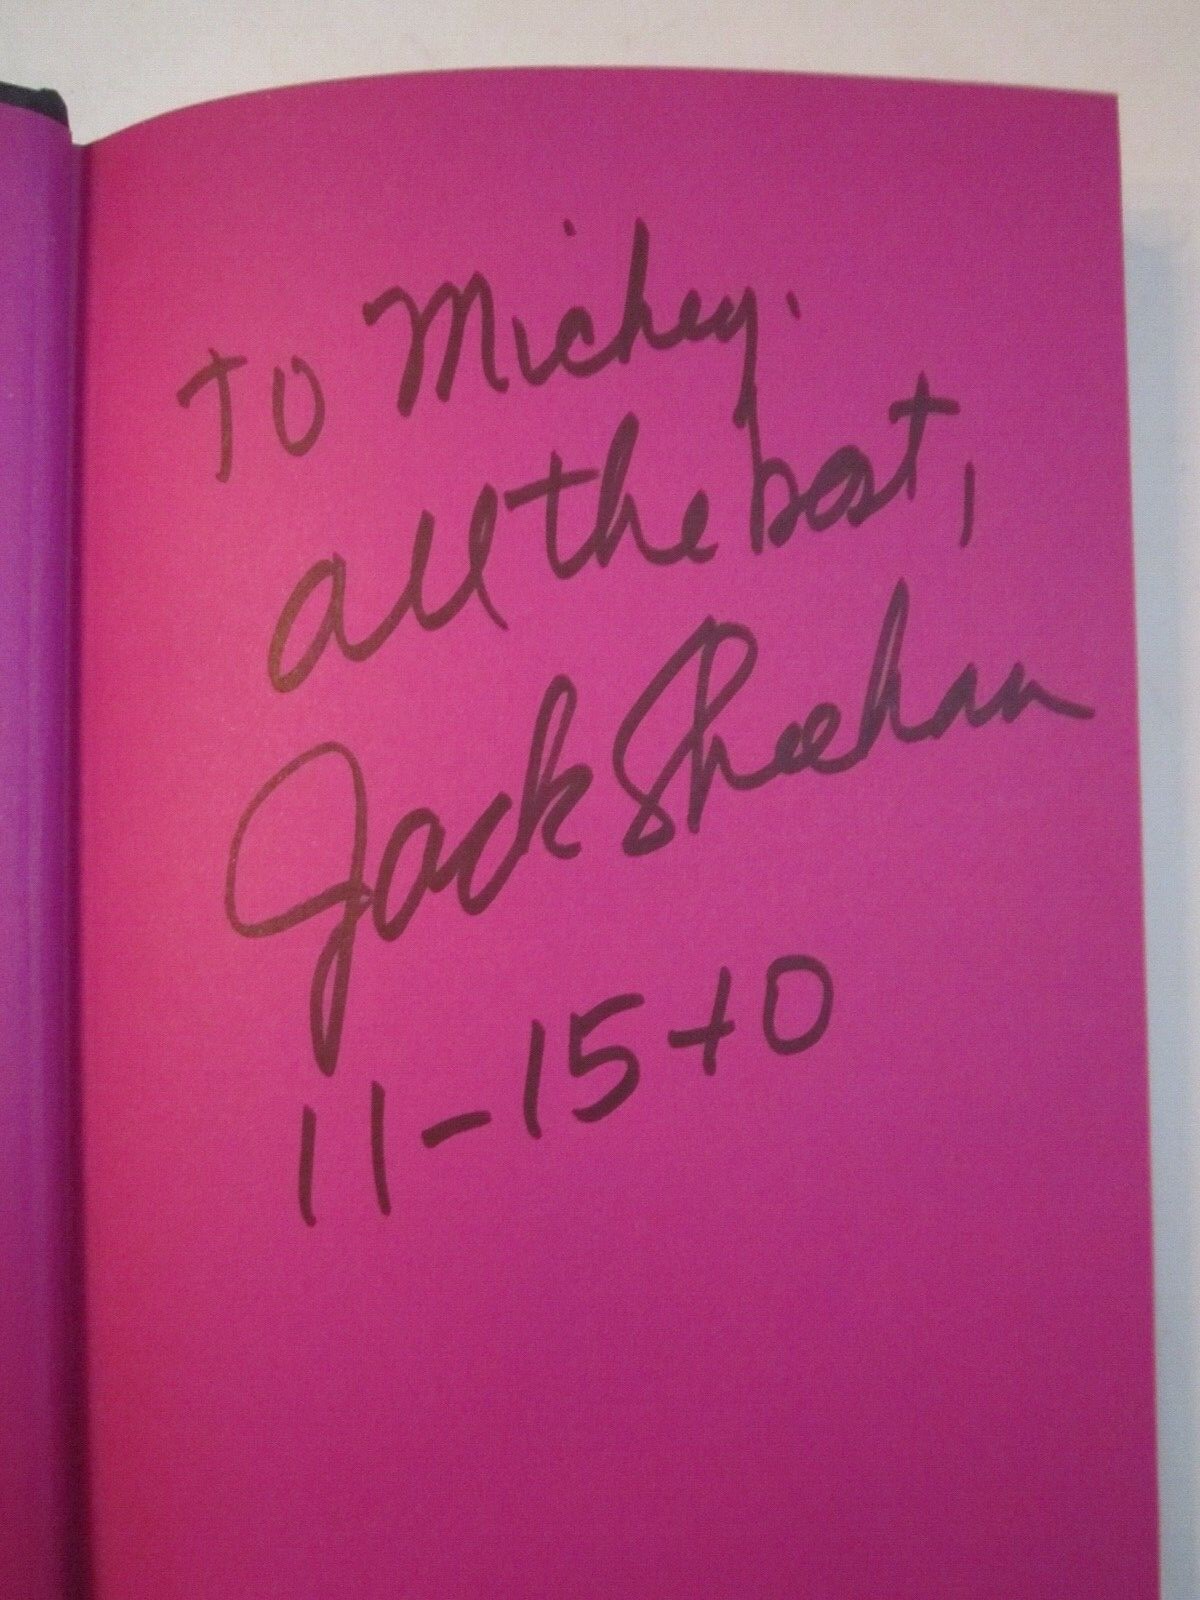 To Mickey.
all the best,
Jack Sheehan
11-15-10